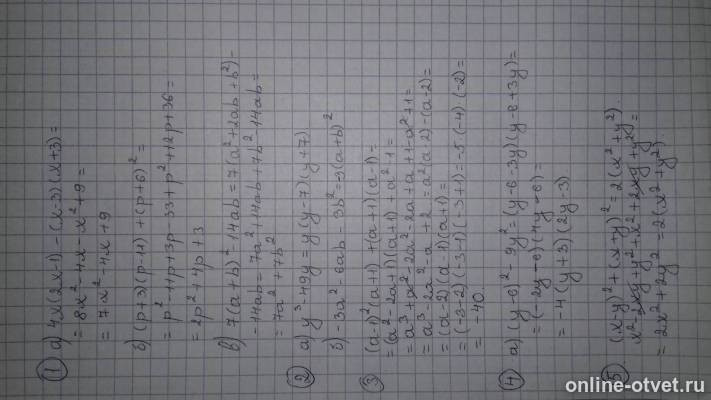 ① а) 4x(2x-1) - (x-3)(x+3) =
= 8x² - 4x - x² + 9 =
= 7x² - 4x + 9
б) (p+3)(p-11) + (p+6)² =
= p² - 11p + 3p - 33 + p² + 12p + 36 =
= 2p² + 4p + 3
в) 7(a+b)² - 14ab = 7(a² + 2ab + b²) -
- 14ab = 7a² + 14ab + 7b² - 14ab =
= 7a² + 7b²
② а) y³ - 49y = y(y-7)(y+7)
б) -3a² - 6ab - 3b² = -3(a+b)²
③ (a-1)²(a+1) + (a+1)(a-1) =
= (a² - 2a + 1)(a+1) + a² - 1 =
= a³ + a² - 2a² - 2a + a + 1 - a² + 1 =
= a³ - 2a² - a + 2 = a²(a-2) - (a-2) =
= (a-2)(a-1)(a+1) =
= (-3-2)(-3-1)(-3+1) = -5·(-4)·(-2) =
= -40
④ а) (y-6)² - 9y² = (y-6-3y)(y-6+3y) =
= (-2y-6)(4y-6) =
= -4(y+3)(2y-3)
⑤ (x-y)² + (x+y)² = 2(x² + y²)
x² - 2xy + y² + x² + 2xy + y² =
= 2x² + 2y² = 2(x² + y²)
online-otvet.ru